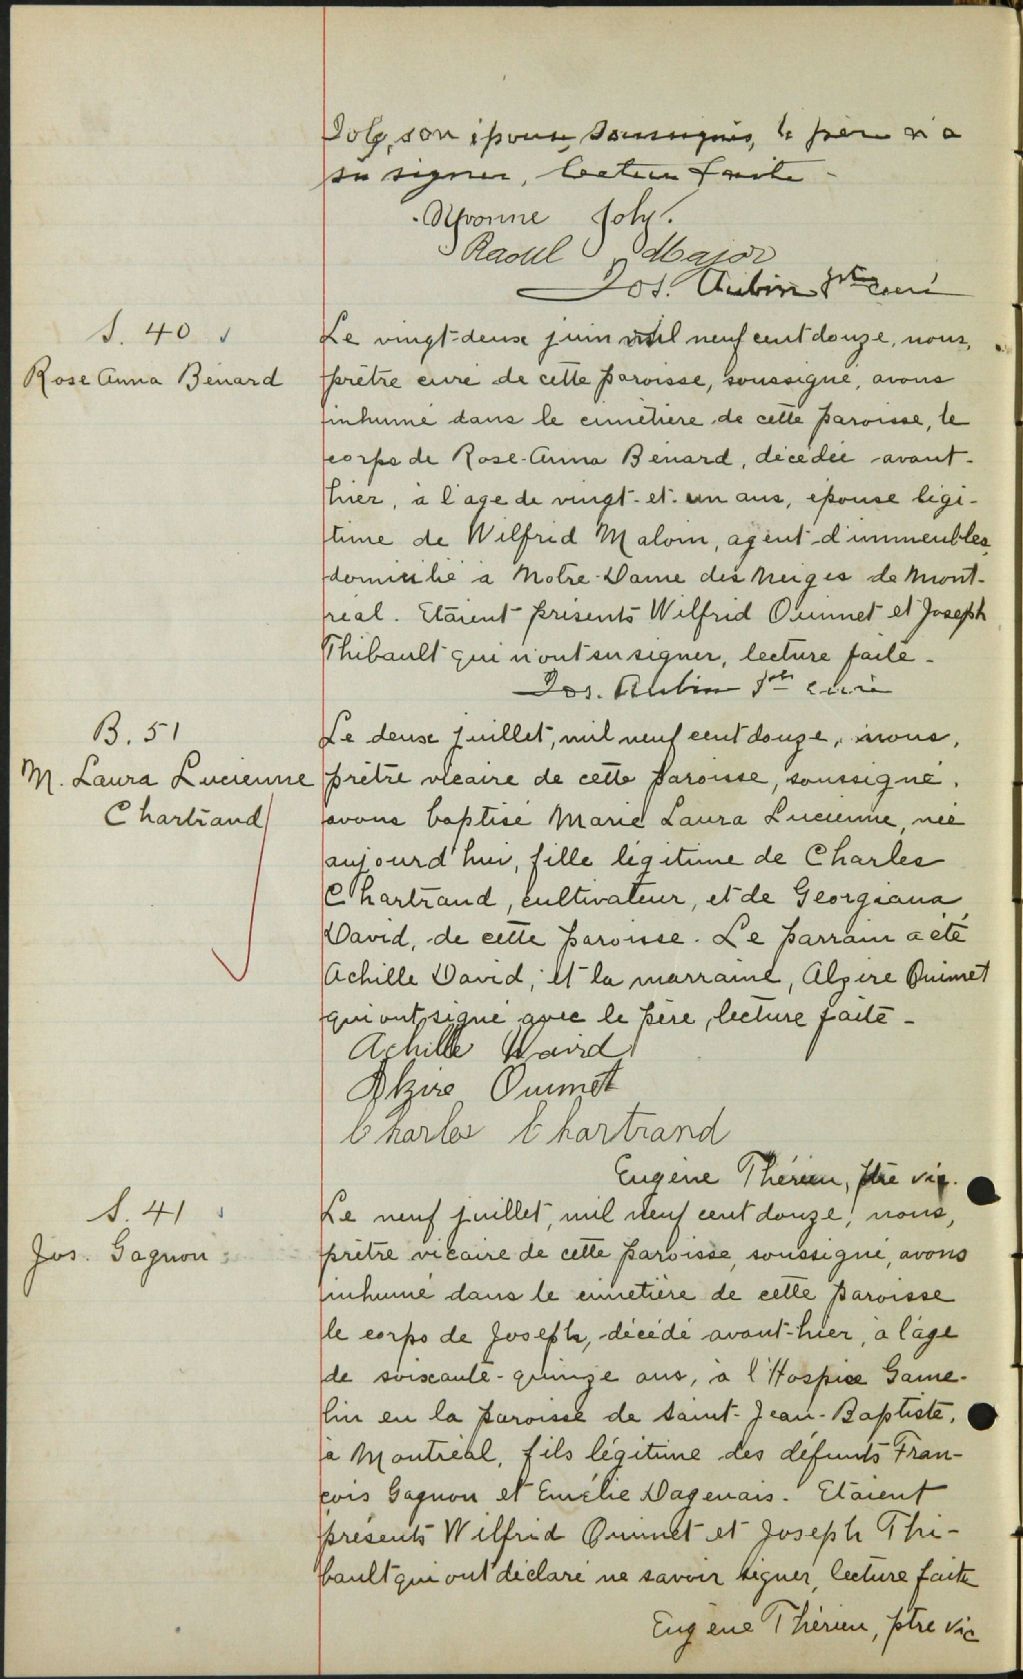 Joly, son épouse, soussignés, le père n'a
su signer, lecture faite -
Yvonne Joly.
Raoul Major
Jos. Aubin ptre curé
S. 40
Rose Anna Bénard
Le vingt-deux juin mil neuf cent douze, nous,
prêtre curé de cette paroisse, soussigné, avons
inhumé dans le cimetière de cette paroisse, le
corps de Rose-Anna Bénard, décédée avant-
hier, à l'age de vingt-et-un ans, épouse légi-
time de Wilfrid Malouin, agent d'immeubles,
domicilié à Notre-Dame des Neiges de Mont-
réal. Etaient présents Wilfrid Ouimet et Joseph
Thibault qui n'ont su signer, lecture faite -
Jos. Aubin ptre curé
B. 51
M. Laura Lucienne
Chartrand
Le deux juillet, mil neuf cent douze, nous,
prêtre vicaire de cette paroisse, soussigné,
avons baptisé Marie Laura Lucienne, née
aujourd'hui, fille légitime de Charles
Chartrand, cultivateur, et de Georgiana
David, de cette paroisse. Le parrain a été
Achille David, et la marraine, Alzire Ouimet
qui ont signé avec le père, lecture faite -
Achille David
Alzire Ouimet
Charles Chartrand
Eugène Thérien, ptre vic.
S. 41
Jos. Gagnon
Le neuf juillet, mil neuf cent douze, nous,
prêtre vicaire de cette paroisse, soussigné, avons
inhumé dans le cimetière de cette paroisse
le corps de Joseph, décédé avant-hier, à l'âge
de soixante-quinze ans, à l'Hospice Game-
lin en la paroisse de Saint-Jean-Baptiste,
à Montréal, fils légitime des défunts Fran-
çois Gagnon et Emélie Dagenais. Etaient
présents Wilfrid Ouimet et Joseph Thi-
bault qui ont déclaré ne savoir signer, lecture faite
Eugène Thérien, ptre vic